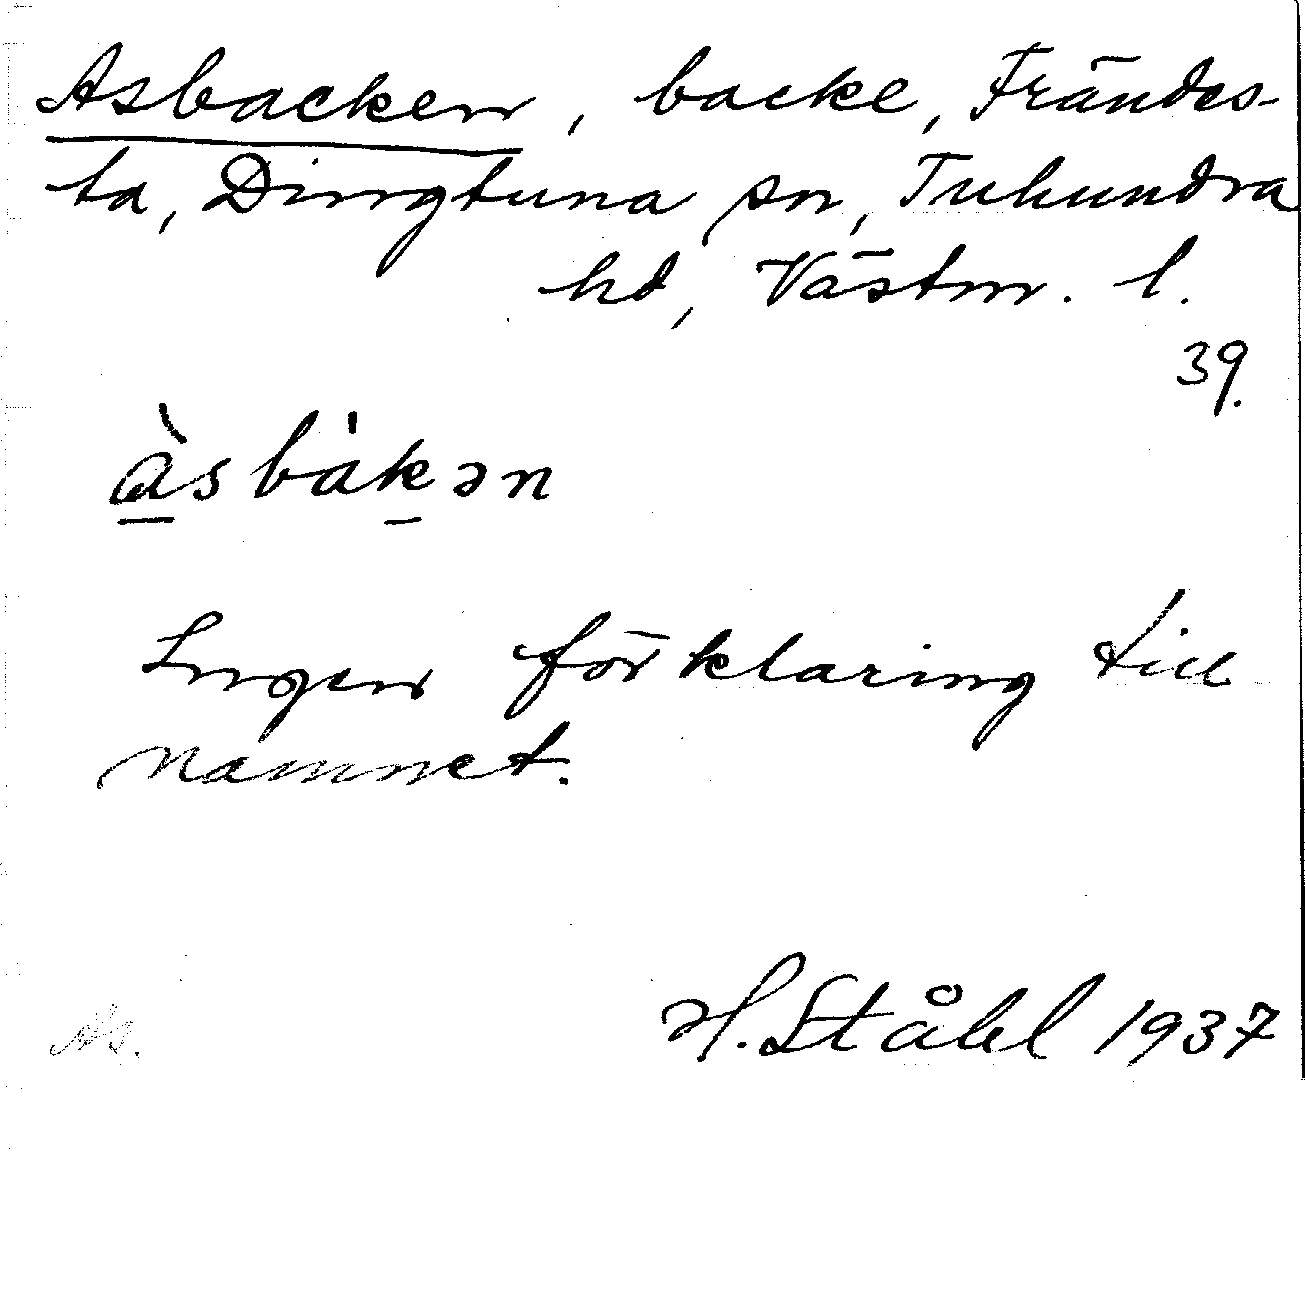 Asbacken, backe, Frändes-
ta, Dingtuna sn, Tuhundra
hd, Västm. l.
39.
ɑ̠̀sbàk̠ən
Ingen förklaring till
namnet.
As.
H. Ståhl 1937